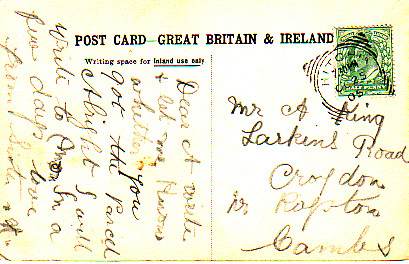 POST CARD—GREAT BRITAIN & IRELAND
Writing space for Inland use only
Dear A write
& let me know
whether you
got the Parcel
Alright I will
write to in a
few days love
from
HALF PENNY
05
Mr A King
Larkins Road
Croydon
Nr Royston
Cambs